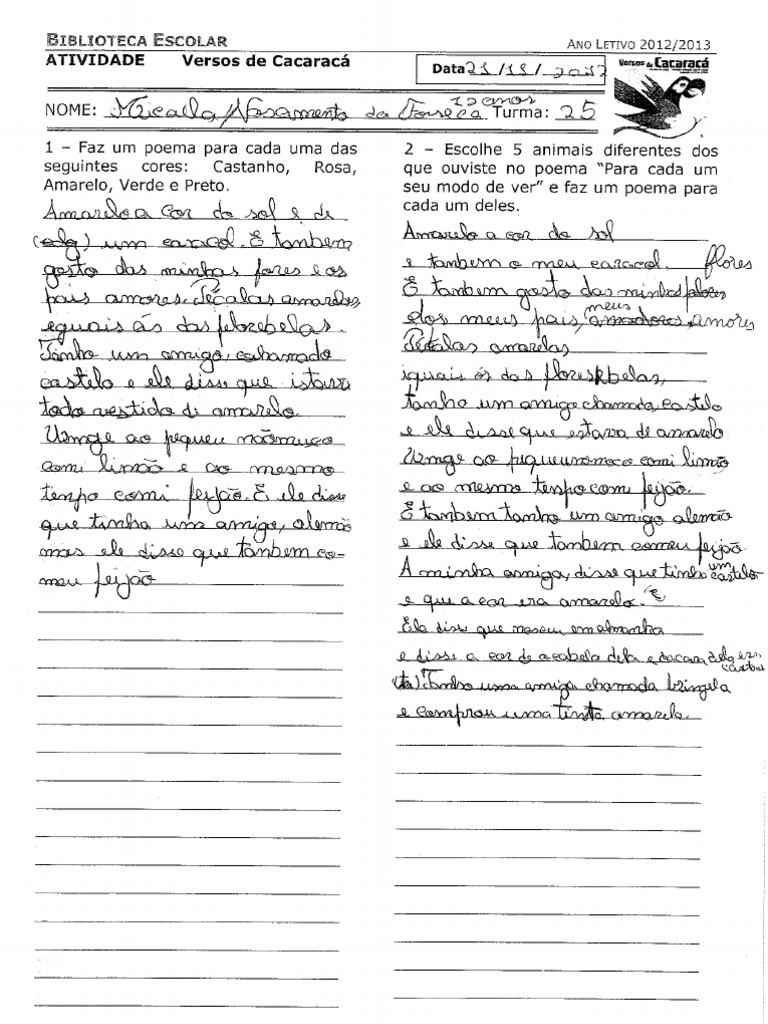 BIBLIOTECA ESCOLAR
ANO LETIVO 2012/2013
ATIVIDADE Versos de Cacaracá
Data 21/11/2012
Versos de Cacaracá
NOME: Micaela Nascimento da Fonseca 12 anos Turma: 25
1 – Faz um poema para cada uma das
seguintes cores: Castanho, Rosa,
Amarelo, Verde e Preto.
Amarelo a cor do sol e de
um caracol. E tanbem
gosto das minhas fores e os
pais amores. Técalas amarelas
eguais ás das florebelas.
Tanho um amigo, cahamado
castelo e ele disse que istava
todo vestido de amarelo.
ao pequeu
comi limão e ao mesmo
tenpo comi feijão. E ele disse
que tinha um amigo, alemão
mas ele disse que tanbem co-
meu feijão
2 – Escolhe 5 animais diferentes dos
que ouviste no poema "Para cada um
seu modo de ver" e faz um poema para
cada um deles.
Amarelo a cor do sol
e tanbem o meu caracol.
E tanbem gosto das minhas flores
dos meus pais, meus amores
Técalas amarelas
iguais ós das floreskbelas,
tanho um amigo chamado, castelo
e ele disse que estava de amarelo
ao comi limão
e ao mesmo tenpo com feijão.
E tanbem tanho um amigo alemão
e ele disse que tanbem comeu feijão
A minha amiga, disse que tinha um castelo
e que a cor era amarelo.
Ela disse que em
e disse a cor de
Tanho uma amiga chamada bringela
e comprou uma tinta amarela.